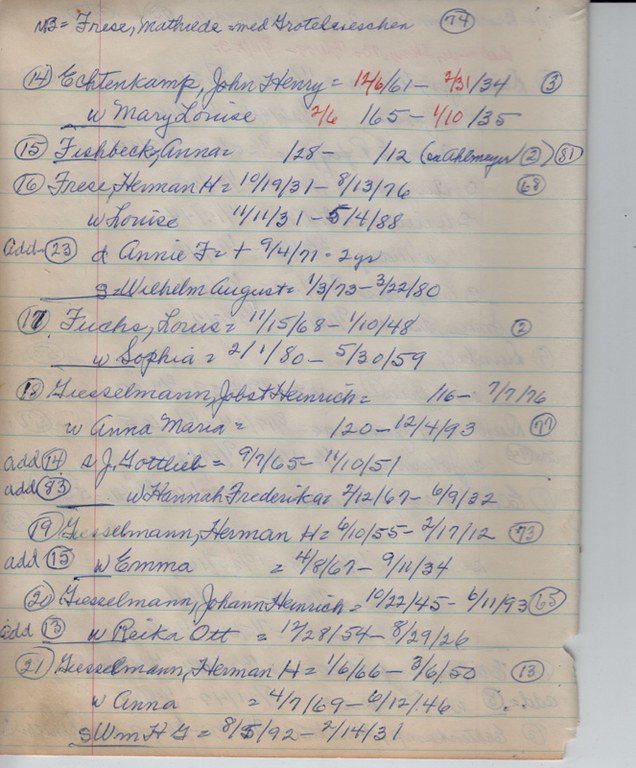 NB = Frese, Mathieda = med Grotelueschen (74)
(14) Echtenkamp, John Henry = 12/6/61 – 2/31/34 (3)
w Mary Louise 2/6 /65 – 1/10 /35
(15) Fishbeck, Anna = /28 – /12 (on Ahlmeyer (2)) (81)
(16) Frese, Herman H = 10/19/31 – 8/13/76 (68)
w Louise 11/11/31 – 5/4/88
add (23) d Annie F = + 9/4/71 - 2 yr
s = Wilhelm August = 1/3/73 – 3/22/80
(17) Fuchs, Louis = 11/15/68 – 1/10/48 (2)
w Sophia = 2/1/80 – 5/30/59
(18) Giesselmann, Jobst Heinrich = /16 – 7/7/76
w Anna Maria = /20 – 12/4/93 (77)
add (14) s J. Gottlieb = 9/7/65 – 11/10/51
add (83) w Hannah Frederika = 2/12/67 – 6/9/32
(19) Giesselmann, Herman H = 6/10/55 – 2/17/12 (73)
add (15) w Emma = 4/8/67 – 9/11/34
(20) Giesselmann, Johann Heinrich = 10/22/45 – 6/11/93 (65)
add (13) w Reika Ott = 12/28/54 – 8/29/26
(21) Giesselmann, Herman H = 1/6/66 – 3/6/50 (13)
w Anna = 4/7/69 – 6/12/46
s Wm H G = 8/5/92 – 2/14/31